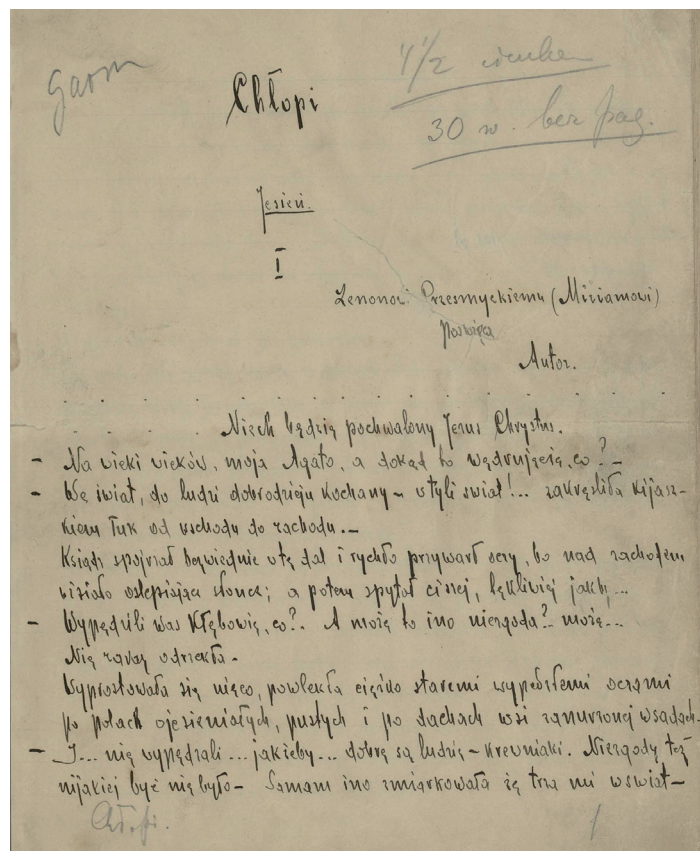 Garm
4 1/2
30 w. bez pag.
Chłopi
Jesień.
I
Zenonowi Przesmyckiemu (Miriamowi)
poświęca
Autor.
Niech będzie pochwalony Jezus Chrystus.
– Na wieki wieków, moja Agato, a dokąd to wędrujecie, co? –
– We świat, do ludzi dobrodzieju kochany – w tyli świat!.. zakreśliła kijasz-
kiem łuk od wschodu do zachodu. –
Ksiądz spojrzał bezwiednie w tę dal i rychło przywarł oczy, bo nad zachodem
wisiało oślepiające słońce; a potem spytał ciszej, lękliwiej jakby...
– Wypędzili was Kłębowie, co?. A może to ino niezgoda?. może...
Nie zaraz odrzekła.
Wyprostowała się nieco, powlekła ciężko staremi wypełzłemi oczami
po polach ojesieniałych, pustych i po dachach wsi zanurzonej w sadach.
– I... nie wypędzali... jakżeby... dobre są ludzie – krewniaki. Niezgody też
nijakiej być nie było – Samam ino zmiarkowała że trza mi w świat –
Chłopi.
1